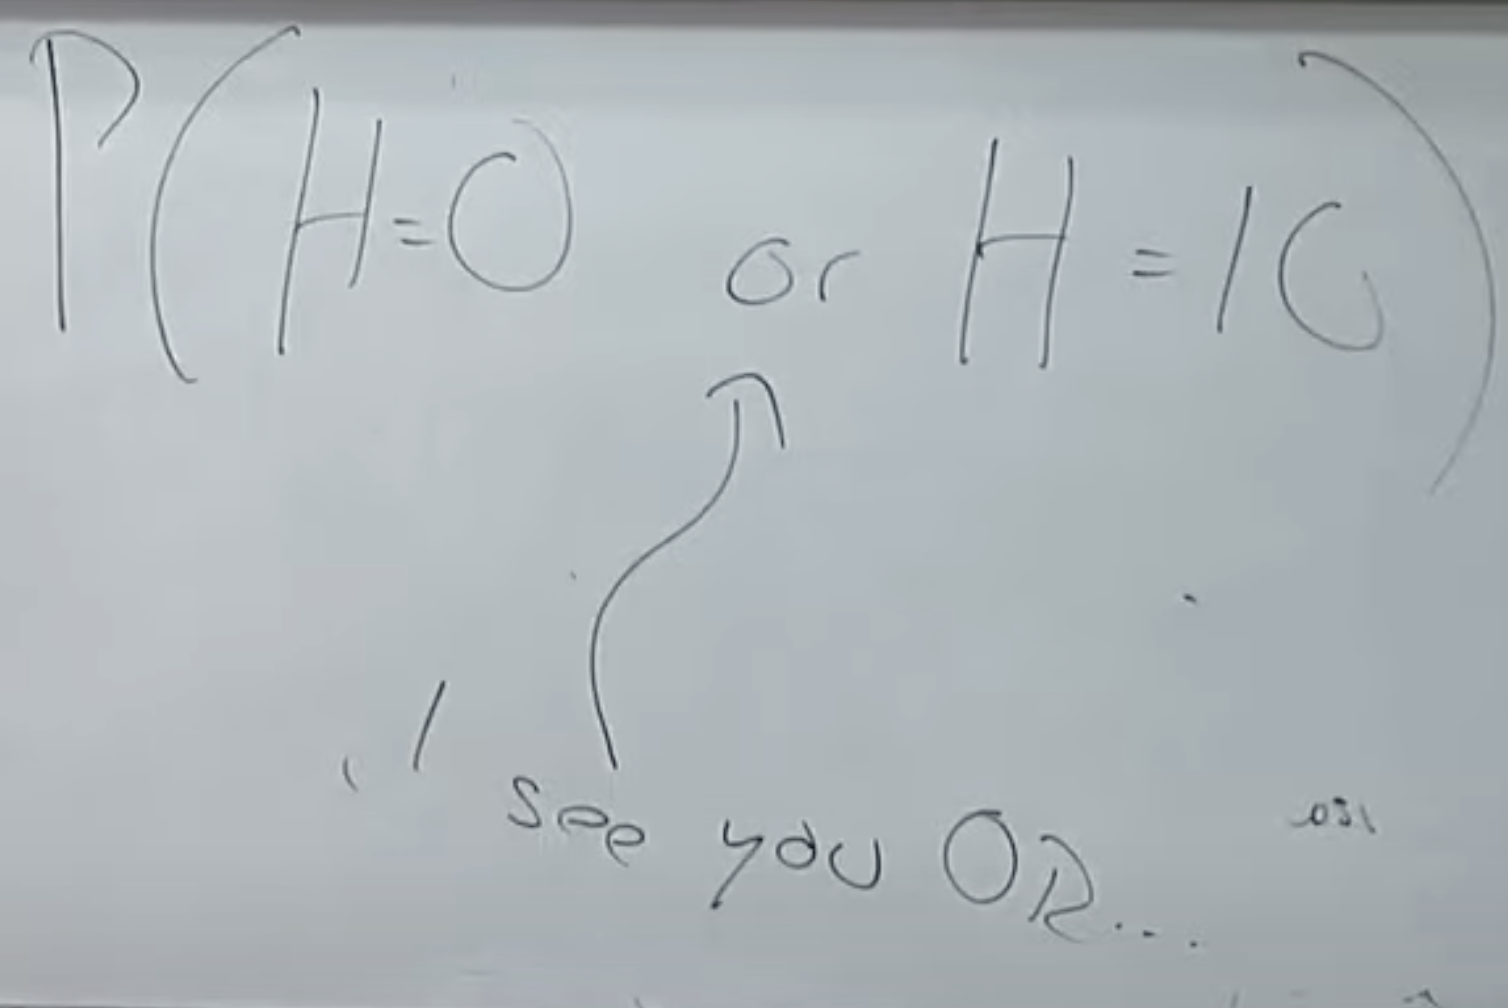 P(H=0 or H=10)
I see you OR...